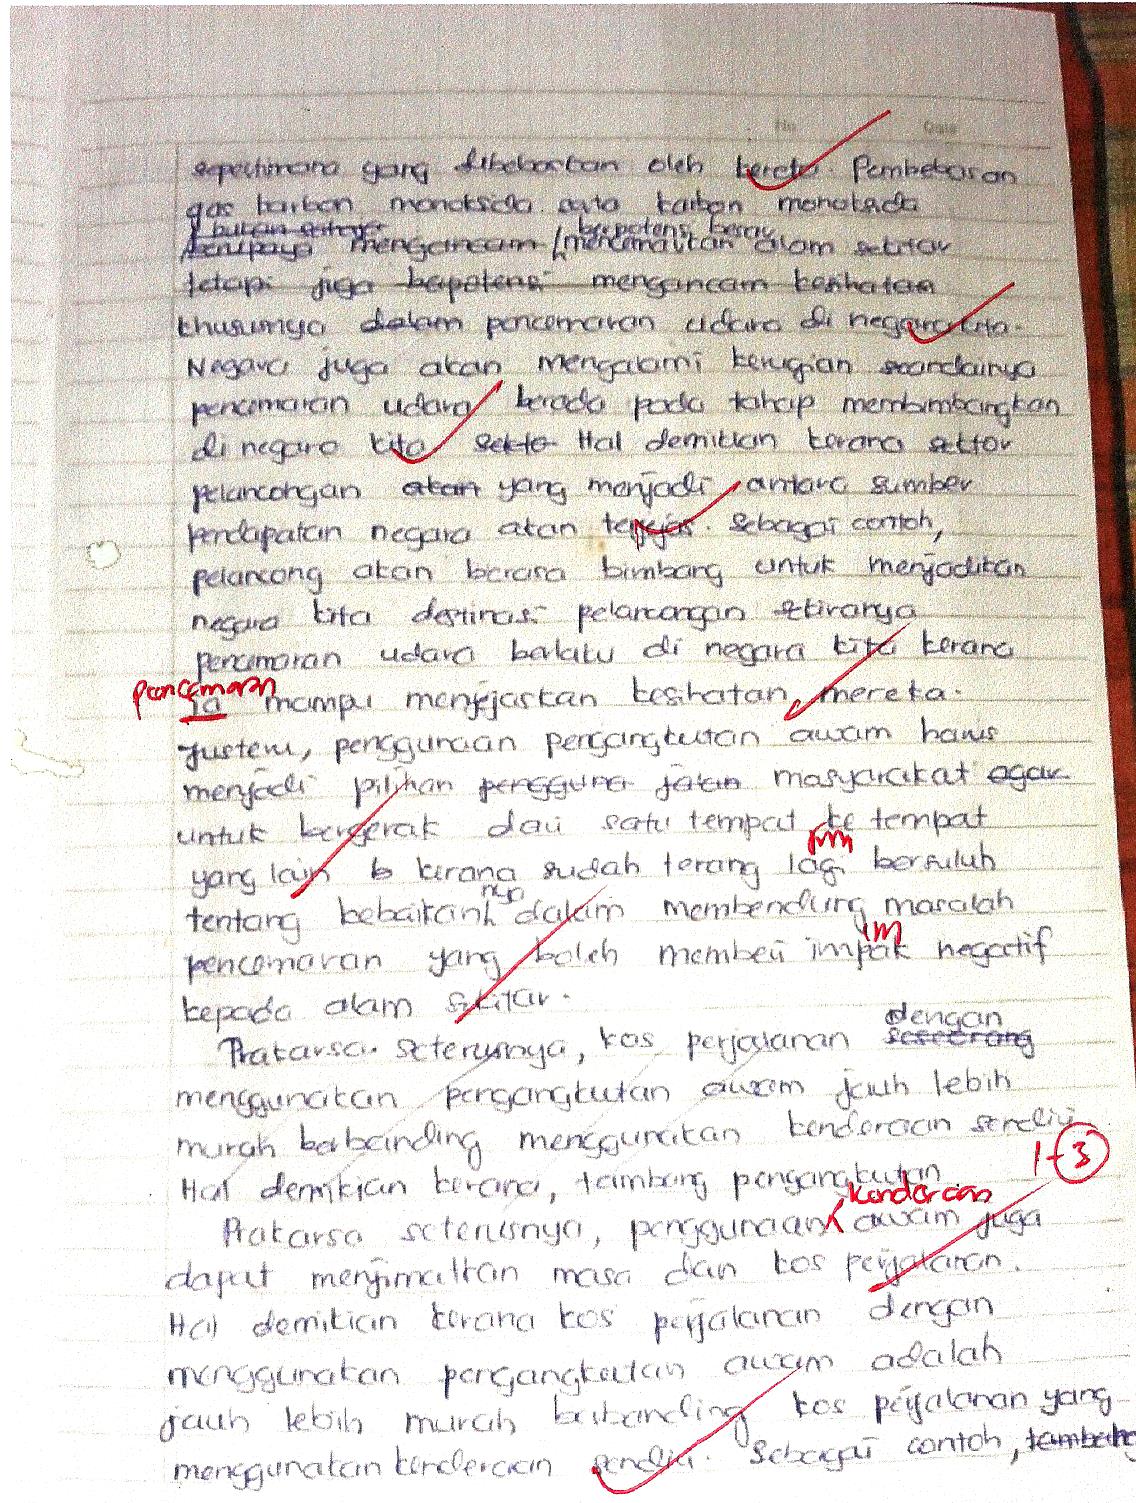 sepertimana yang dibebaskan oleh kereta. Pembebasan
gas karbon monoksida
mengancam mencemarkan alam sekitar
berpotensi besar
tetapi juga berpotensi mengancam kesihatan
khususnya dalam pencemaran udara di negara kita.
Negara juga akan mengalami kerugian seandainya
pencemaran udara berada pada tahap membimbangkan
di negara kita Sekto Hal demikian kerana sektor
pelancongan akan yang menjadi antara sumber
pendapatan negara akan terjejas. Sebagai contoh,
pelancong akan berasa bimbang untuk menjadikan
negara kita destinasi pelancongan sekiranya
pencemaran udara berlaku di negara kita kerana
pencemaran
ia mampu menjejaskan kesihatan mereka.
Justeru, penggunaan pengangkutan awam harus
menjadi pilihan pengguna jalan masyarakat agar
untuk bergerak dari satu tempat ke tempat
yang lain kerana sudah terang lagi bersuluh
tentang kebaikannya dalam membendung masalah
im
pencemaran yang boleh memberi impak negatif
kepada alam sekitar.
dengan
Prakarsa seterusnya, kos perjalanan seseorang
menggunakan pengangkutan awam jauh lebih
murah berbanding menggunakan kenderaan sendiri
1-3
Hal demikian kerana, tambang pengangkutan
kenderaan
Prakarsa seterusnya, penggunaan awam juga
dapat menjimatkan masa dan kos perjalanan.
Hal demikian kerana kos perjalanan dengan
menggunakan pengangkutan awam adalah
jauh lebih murah berbanding kos perjalanan yang
menggunakan kenderaan sendiri. Sebagai contoh, tambang